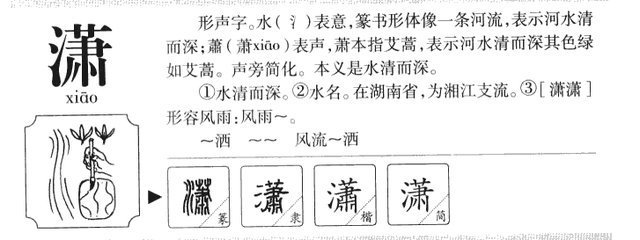 潇
xiāo
形声字。水(氵)表意,篆书形体像一条河流,表示河水清
而深;蕭(萧xiāo)表声,萧本指艾蒿,表示河水清而深其色绿
如艾蒿。声旁简化。本义是水清而深。
①水清而深。②水名。在湖南省,为湘江支流。③[潇潇]
形容风雨:风雨～。
～洒 ～～ 风流～洒
瀟 篆 瀟 隶 瀟 楷 潇 简